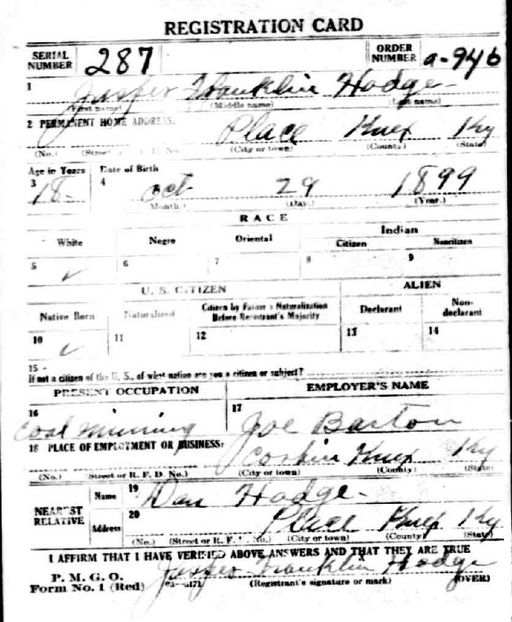 REGISTRATION CARD
SERIAL NUMBER 287 ORDER NUMBER a-946
1 Jasper Franklin Hodge
(First name) (Middle name) (Last name)
2 PERMANENT HOME ADDRESS: Place Knox Ky
(No.) (Street or R. F. D. No.) (City or town) (County) (State)
Age in Years Date of Birth
3 18 4 Oct 29 1899
(Month.) (Day.) (Year.)
RACE
White Negro Oriental Indian
Citizen Noncitizen
5 ✓ 6 7 8 9
U. S. CITIZEN ALIEN
Native Born Naturalized Citizen by Father's Naturalization Before Registrant's Majority Declarant Non-declarant
10 ✓ 11 12 13 14
15
If not a citizen of the U. S., of what nation are you a citizen or subject?
PRESENT OCCUPATION EMPLOYER'S NAME
16 Coal Mining 17 Joe Barton
18 PLACE OF EMPLOYMENT OR BUSINESS: Corbin Knox Ky
(No.) (Street or R. F. D. No.) (City or town) (County) (State)
NEAREST RELATIVE Name 19 Dan Hodge
Address 20 Place Knox Ky
(No.) (Street or R. F. D. No.) (City or town) (County) (State)
I AFFIRM THAT I HAVE VERIFIED ABOVE ANSWERS AND THAT THEY ARE TRUE
P. M. G. O.
Form No. 1 (Red) Jasper Franklin Hodge
(Registrant's signature or mark) (OVER)